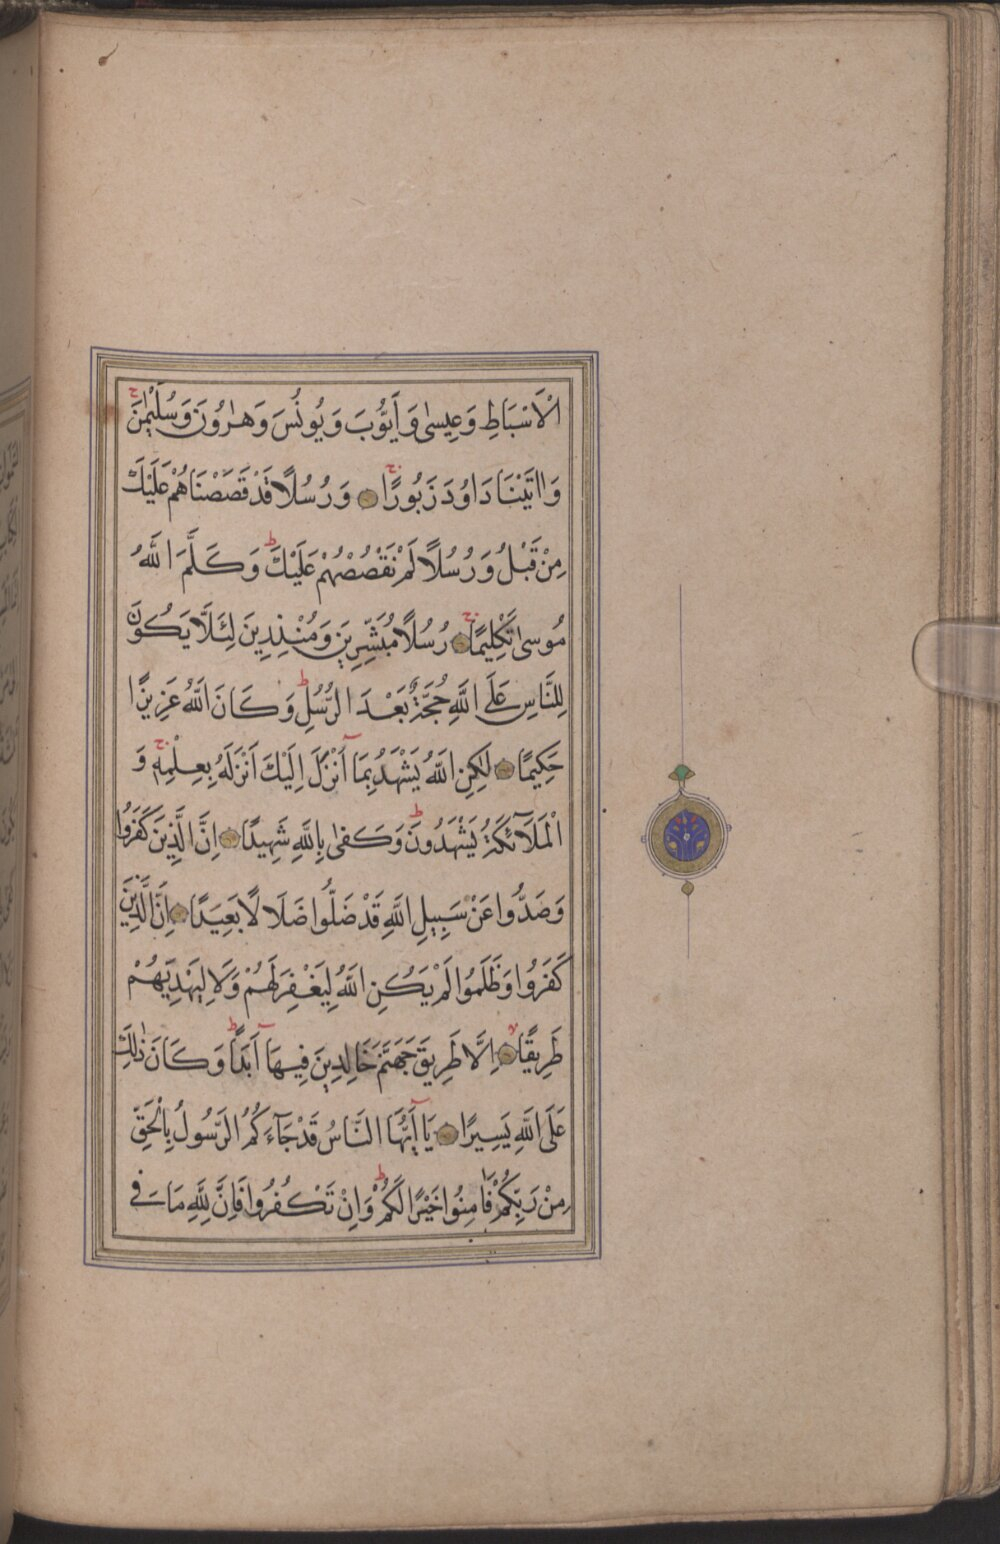 الْاَسْبَاطِ وَعِيسٰى وَاَيُّوبَ وَيُونُسَ وَهٰرُونَ وَسُلَيْمٰنَ
وَاٰتَيْنَا دَاوُدَ زَبُورًا وَرُسُلًا قَدْ قَصَصْنَاهُمْ عَلَيْكَ
مِنْ قَبْلُ وَرُسُلًا لَمْ نَقْصُصْهُمْ عَلَيْكَ وَكَلَّمَ اللّٰهُ
مُوسٰى تَكْلِيمًا رُسُلًا مُبَشِّرِينَ وَمُنْذِرِينَ لِئَلَّا يَكُونَ
لِلنَّاسِ عَلَى اللّٰهِ حُجَّةٌ بَعْدَ الرُّسُلِ وَكَانَ اللّٰهُ عَزِيزًا
حَكِيمًا لٰكِنِ اللّٰهُ يَشْهَدُ بِمَا اَنْزَلَ اِلَيْكَ اَنْزَلَهُ بِعِلْمِهِ وَ
الْمَلَآئِكَةُ يَشْهَدُونَ وَكَفٰى بِاللّٰهِ شَهِيدًا اِنَّ الَّذِينَ كَفَرُوا
وَصَدُّوا عَنْ سَبِيلِ اللّٰهِ قَدْ ضَلُّوا ضَلَالًا بَعِيدًا اِنَّ الَّذِينَ
كَفَرُوا وَظَلَمُوا لَمْ يَكُنِ اللّٰهُ لِيَغْفِرَ لَهُمْ وَلَا لِيَهْدِيَهُمْ
طَرِيقًا اِلَّا طَرِيقَ جَهَنَّمَ خَالِدِينَ فِيهَا اَبَدًا وَكَانَ ذٰلِكَ
عَلَى اللّٰهِ يَسِيرًا يَا اَيُّهَا النَّاسُ قَدْ جَآءَكُمُ الرَّسُولُ بِالْحَقِّ
مِنْ رَبِّكُمْ فَاٰمِنُوا خَيْرًا لَكُمْ وَاِنْ تَكْفُرُوا فَاِنَّ لِلّٰهِ مَا فِى